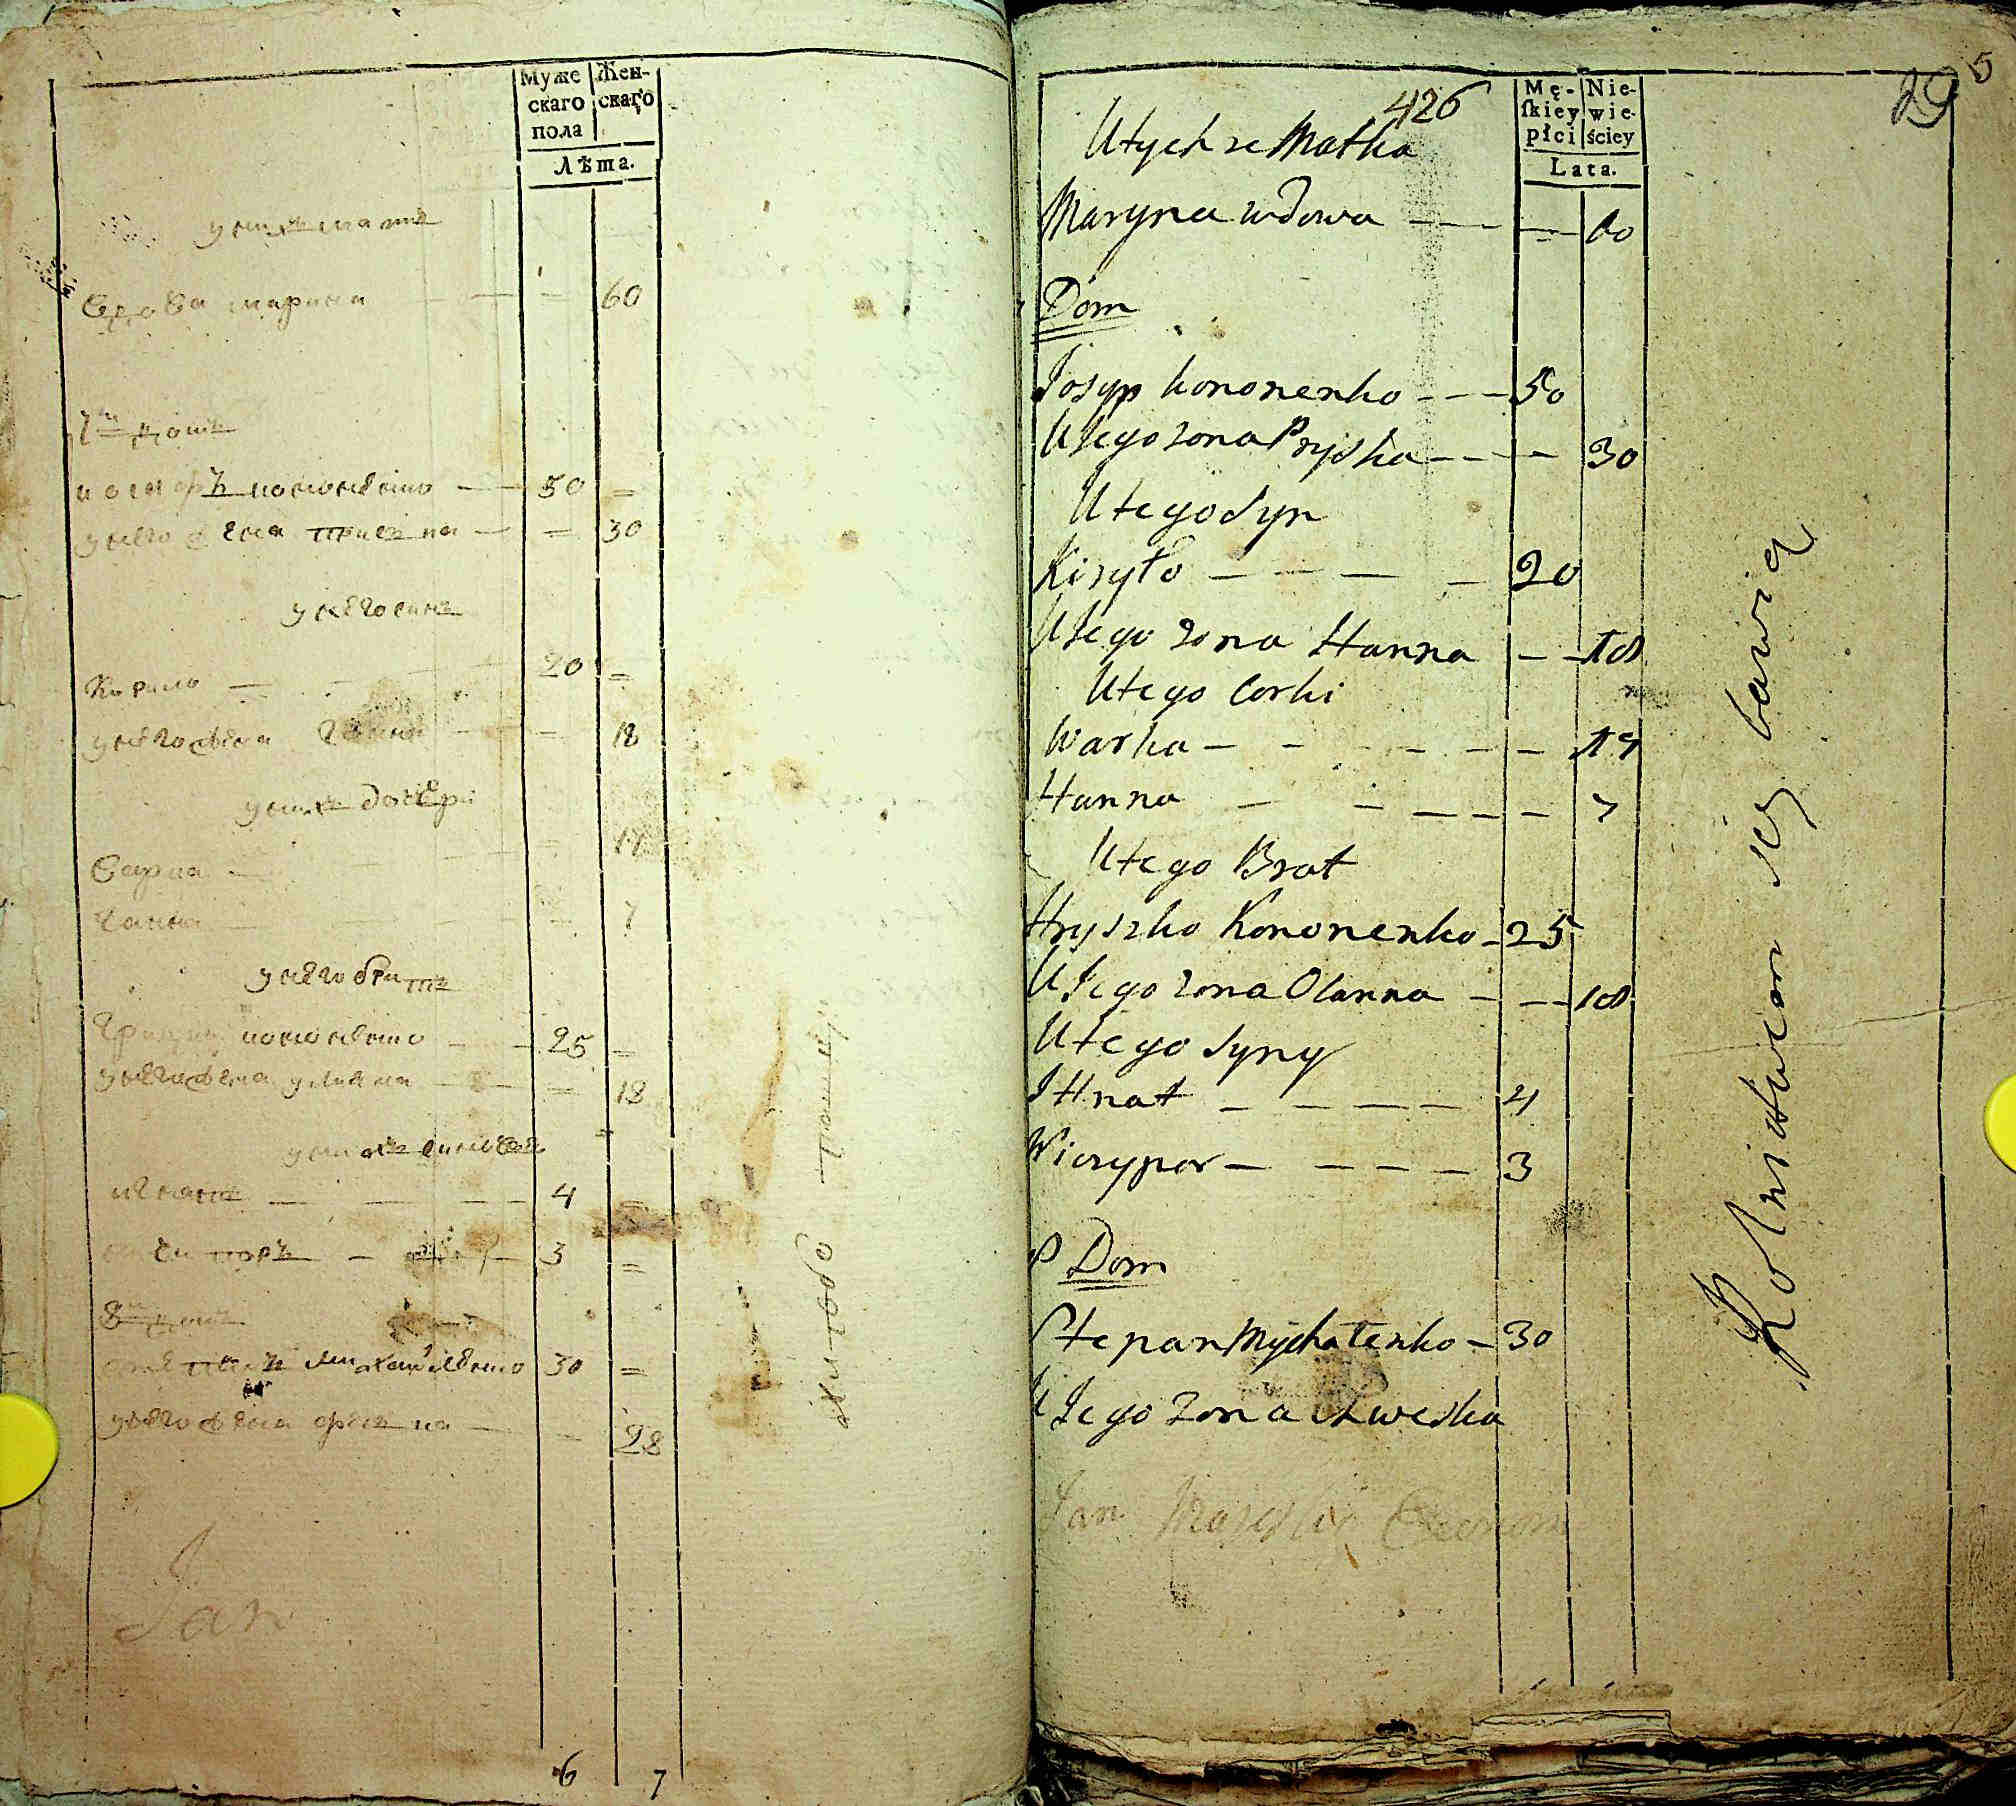 Муже
скаго
пола
Жен-
скаго
Лѣта.
у тихъ мать
вдова марина — — — 60
7й домъ
кононенко — 50 =
у него жена приська — = 30
у него синъ
Кирило — — — 20 =
у него жена ганна — — 18
у тихъ дочери
Варка — — — 14
Ганна — — — 7
у него братъ
Грицко кононенко — — 25 =
у него жена уляна — — = 18
у тихъ синовей
игнатъ — — — 4 =
— 3 =
8й домъ
михайленко 30 =
у него жена — — 28
Jan
6 7
хлѣбо
426
29
5
Mę-
skiey
płci
Nie-
wie-
ściey
Lata.
U tych ze Matka
Maryna wdowa — — — — 60
Dom
Josyp kononenko - - - 50
U Jego zona Pryska - - - - 30
U tego Syn
Kiryło — — — — 20
U Jego zona Hanna — — 18
U tego Corki
Warka — - - - - — 14
Hanna — - — — - — 7
U tego Brat
Hryszko Kononenko - 25
U Jego zona Olanna — — — 18
U tego Syny
JHnat — — — — — 4
Niczypor — — — — — 3
8 Dom
Stepan Mychałenko — 30
U Jego zona
Jan
Rolnictwem się bawią